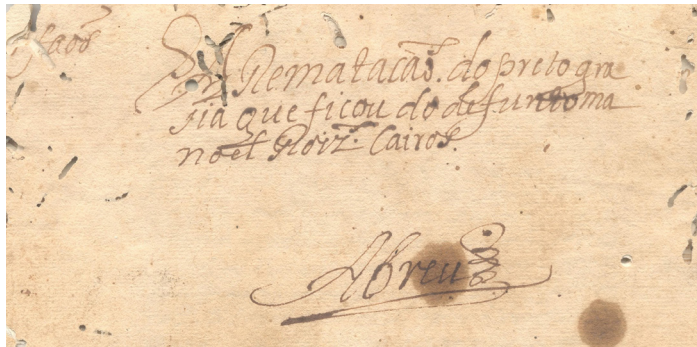 Rematacaõ. do preto gra
sia que ficou do defunto ma
noel Roiz. Cairos.
Abreu